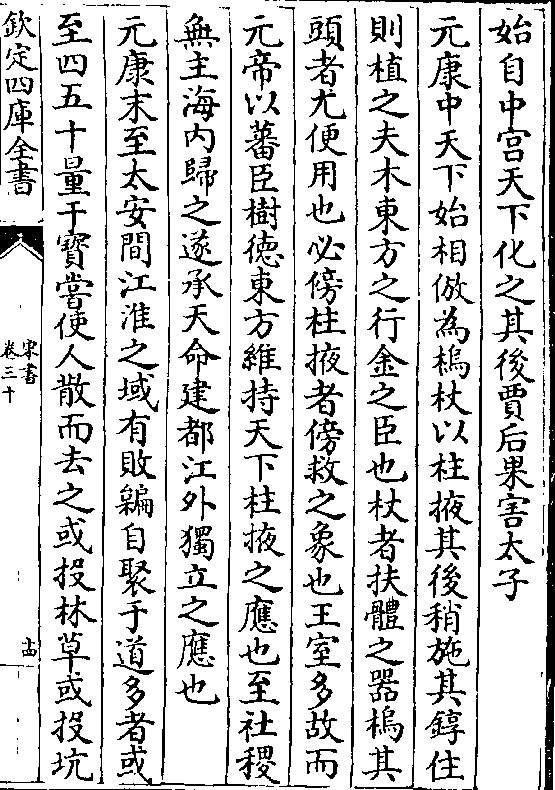 始自中宫天下化之其後賈后果害太子
元康中天下始相倣為楇杖以柱掖其後稍施其錞住
則植之夫木東方之行金之臣也杖者扶體之器楇其
頭者尤便用也必傍柱掖者傍救之象也王室多故而
元帝以蕃臣樹德東方維持天下柱掖之應也至社稷
無主海内歸之遂承天命建都江外獨立之應也
元康末至太安間江淮之域有敗編自聚于道多者或
至四五十量干寳嘗使人散而去之或投林草或投坑
欽定四庫全書
宋書
卷三十
十四